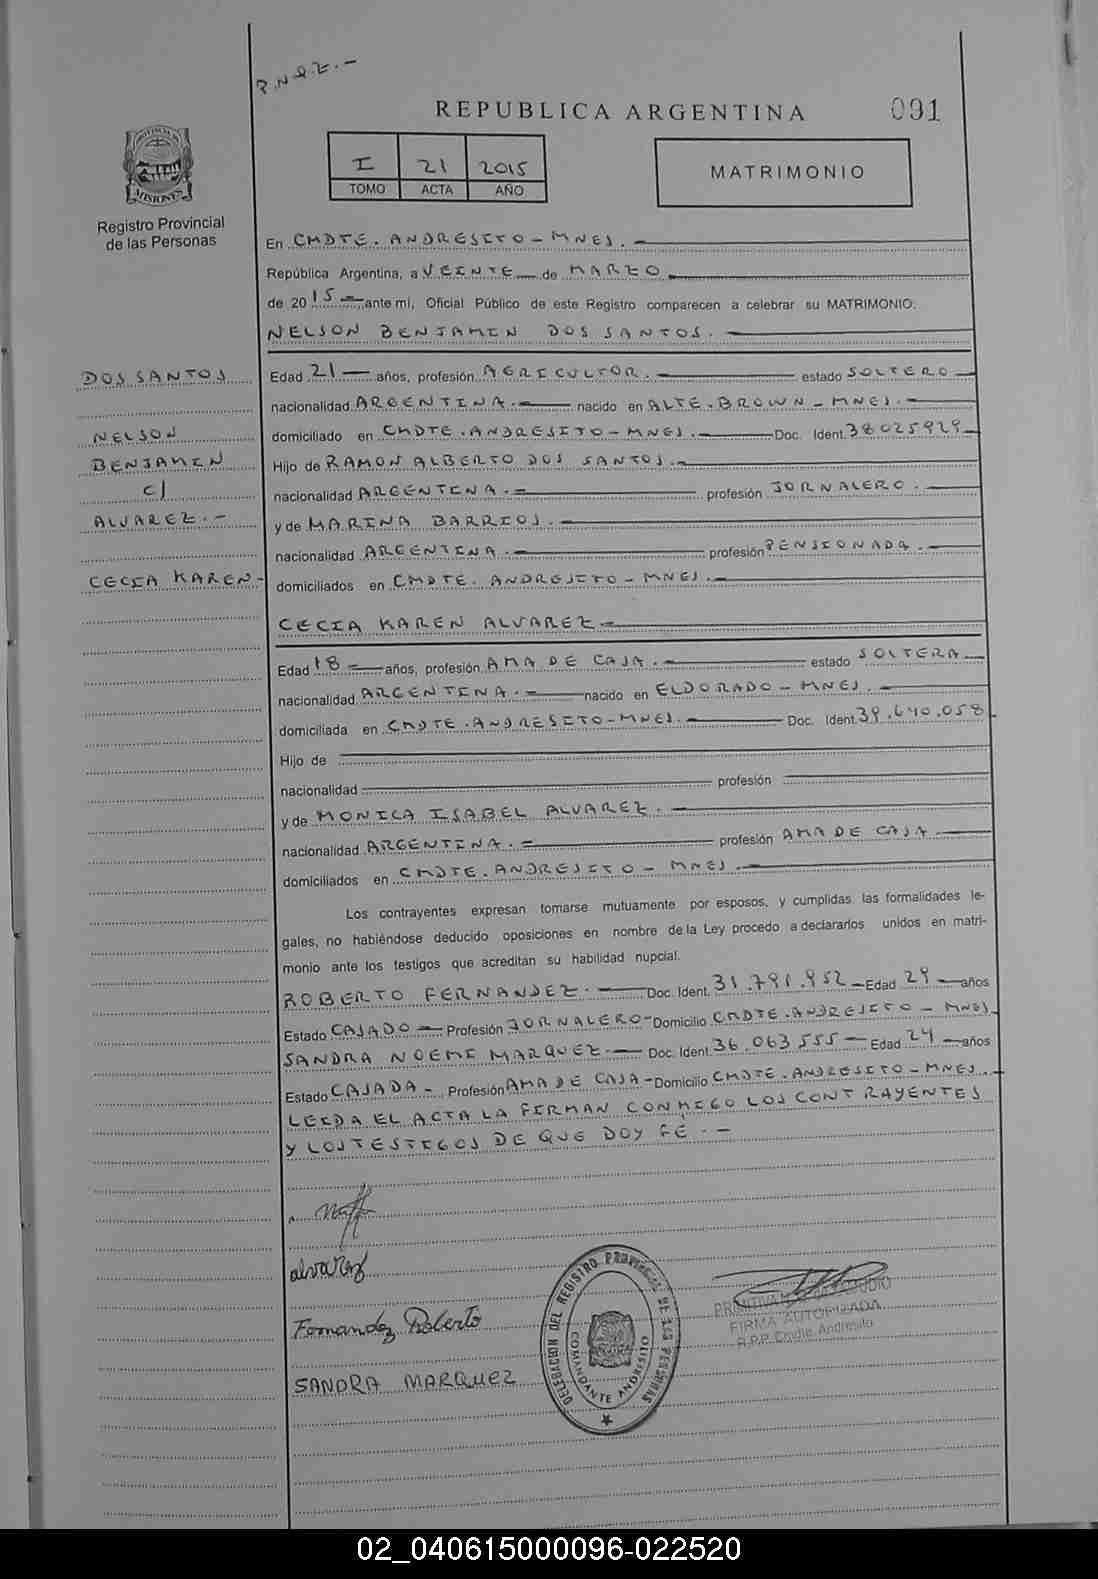 R.N.R.Z.-
REPUBLICA ARGENTINA 091
I 21 2015
TOMO ACTA AÑO
MATRIMONIO
PROVINCIA DE
MISIONES
Registro Provincial
de las Personas
En CMDTE. ANDRESITO - MNES. -
República Argentina, a VEINTE de MARZO
de 2015 - ante mi, Oficial Público de este Registro comparecen a celebrar su MATRIMONIO:
NELSON BENJAMIN DOS SANTOS. -
DOS SANTOS
NELSON
BENJAMIN
C/
ALVAREZ.-
CECIA KAREN-
Edad 21 - años, profesión AGRICULTOR. - estado SOLTERO -
nacionalidad ARGENTINA. - nacido en ALTE. BROWN - MNES. -
domiciliado en CMDTE. ANDRESITO - MNES. - Doc. Ident. 38025929 -
Hijo de RAMON ALBERTO DOS SANTOS. -
nacionalidad ARGENTINA. - profesión JORNALERO. -
y de MARINA BARRIOS. -
nacionalidad ARGENTINA. - profesión PENSIONADA. -
domiciliados en CMDTE. ANDRESITO - MNES. -
CECIA KAREN ALVAREZ -
Edad 18 - años, profesión AMA DE CASA. - estado SOLTERA -
nacionalidad ARGENTINA. - nacido en ELDORADO - MNES. -
domiciliada en CMDTE. ANDRESITO - MNES. - Doc. Ident. 39.640.058
Hijo de
nacionalidad profesión
y de MONICA ISABEL ALVAREZ. -
nacionalidad ARGENTINA. - profesión AMA DE CASA. -
domiciliados en CMDTE. ANDRESITO - MNES. -
Los contrayentes expresan tomarse mutuamente por esposos, y cumplidas las formalidades le-
gales, no habiéndose deducido oposiciones en nombre de la Ley procedo a declararlos unidos en matri-
monio ante los testigos que acreditan su habilidad nupcial.
ROBERTO FERNANDEZ. - Doc. Ident. 31.791.952 - Edad 29 - años
Estado CASADO - Profesión JORNALERO - Domicilio CMDTE. ANDRESITO - MNES.
SANDRA NOEMI MARQUEZ. - Doc. Ident. 36.063.555 - Edad 24 - años
Estado CASADA - Profesión AMA DE CASA - Domicilio CMDTE. ANDRESITO - MNES.
LEIDA EL ACTA LA FIRMAN CONMIGO LOS CONTRAYENTES
Y LOS TESTIGOS DE QUE DOY FE. -
alvarez
Fernandez Roberto
SANDRA MARQUEZ
DELEGACION DEL REGISTRO PROVINCIAL DE LAS PERSONAS
COMANDANTE ANDRESITO
FIRMA AUTORIZADA
R.P.P. Cmdte Andresito
02_040615000096-022520